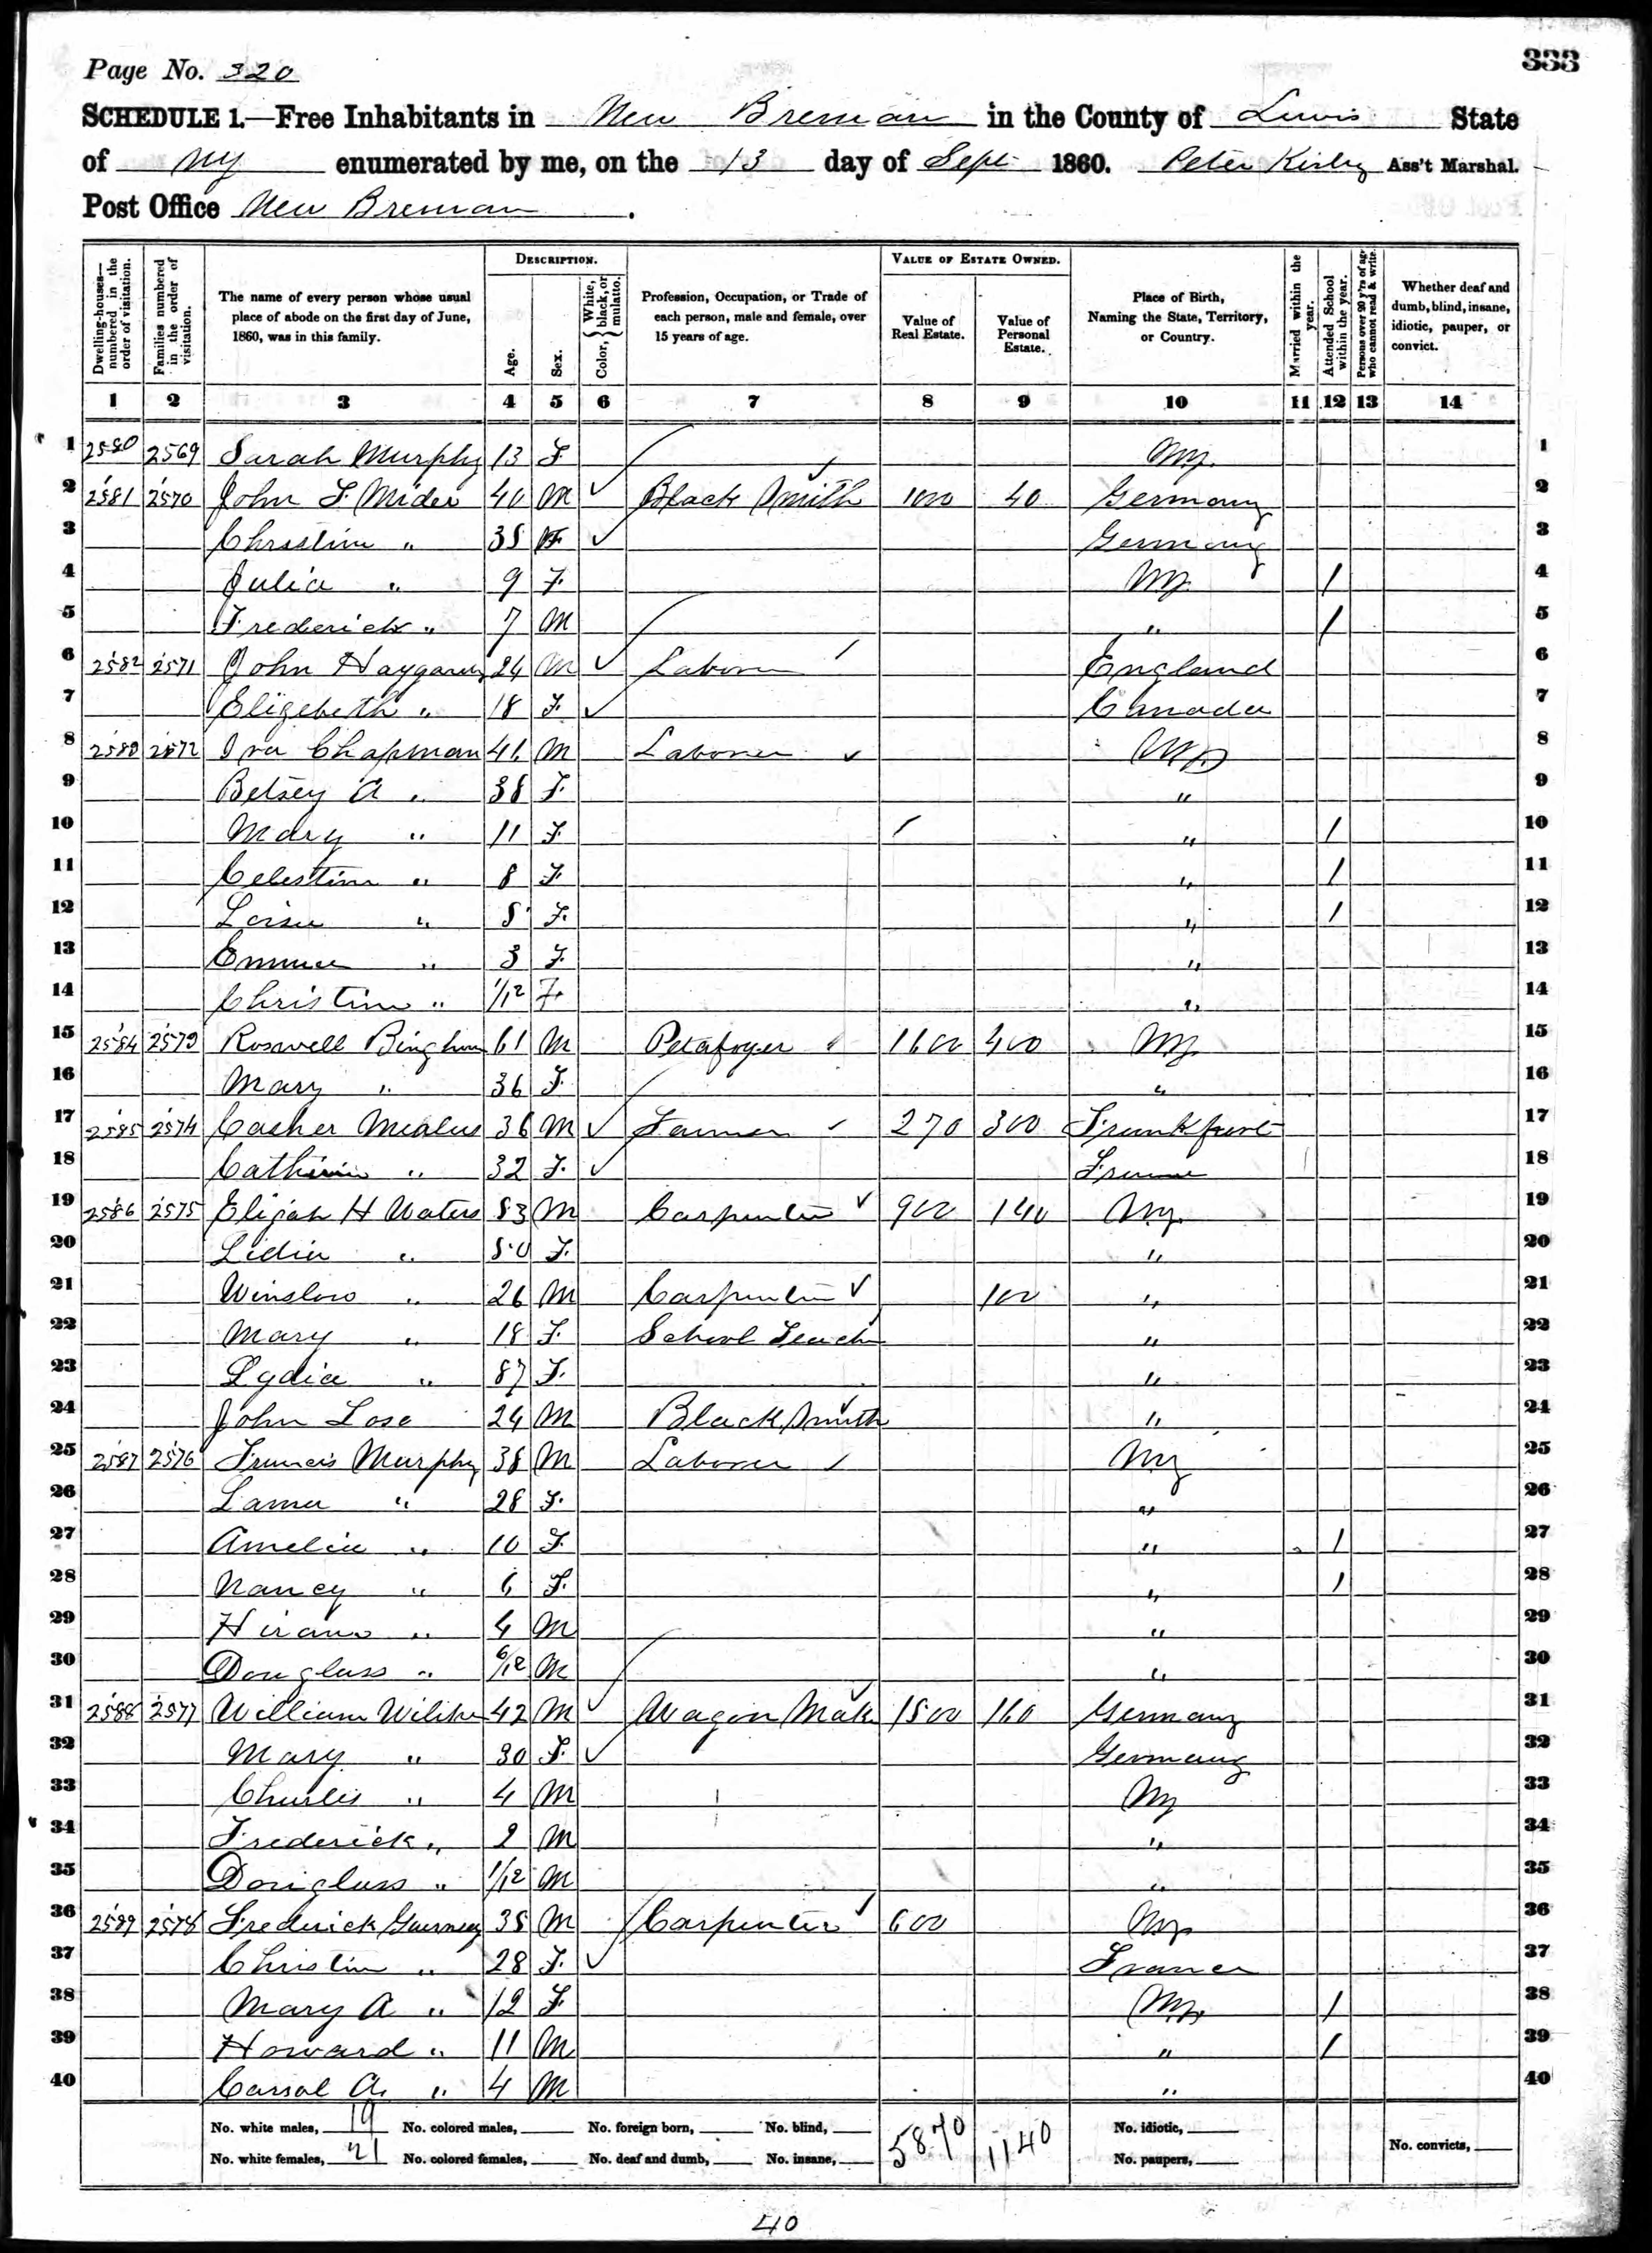 333
Page No. 320
SCHEDULE 1.—Free Inhabitants in New Breman in the County of Lewis State
of NY enumerated by me, on the 13 day of Sept 1860. Peter Kirby Ass't Marshal.
Post Office New Breman.
Dwelling-houses—numbered in the order of visitation. Families numbered in the order of visitation. The name of every person whose usual place of abode on the first day of June, 1860, was in this family. DESCRIPTION. Age. Sex. Color, { White, black, or mulatto. Profession, Occupation, or Trade of each person, male and female, over 15 years of age. VALUE OF ESTATE OWNED. Value of Real Estate. Value of Personal Estate. Place of Birth, Naming the State, Territory, or Country. Married within the year. Attended School within the year. Persons over 20 y'rs of age who cannot read & write. Whether deaf and dumb, blind, insane, idiotic, pauper, or convict.
1 2 3 4 5 6 7 8 9 10 11 12 13 14
1 2580 2569 Sarah Murphy 13 F NY. 1
2 2581 2570 John F. Mider 40 M ✓ Black Smith 1000 40 Germany 2
3 Christin " 35 F ✓ Germany 3
4 Julia " 9 F. NY. / 4
5 Frederick " 7 M " / 5
6 2582 2571 John 24 M ✓ Laborer England 6
7 Elizebeth " 18 F. ✓ Canada 7
8 2583 2572 Ira Chapman 41 M Laborer ✓ NY 8
9 Betsey A " 38 F. " 9
10 Mary " 11 F. " / 10
11 Celestine " 8 F. " / 11
12 " 5 F. " / 12
13 Emma " 3 F. " 13
14 Christine " 1/12 F. " 14
15 2584 2573 Roswell Bingham 61 M Petafoger 1600 400 NY. 15
16 Mary " 36 F. " 16
17 2585 2574 Casher 36 M ✓ Farmer ✓ 270 300 Frankfurt 17
18 Catharin " 32 F. ✓ France 18
19 2586 2575 Elijah H Waters 53 M Carpenter ✓ 900 140 NY. 19
20 Lidia " 50 F. " 20
21 Winslow " 26 M Carpenter ✓ 100 " 21
22 Mary " 18 F. School Teacher " 22
23 Lydia " 87 F. " 23
24 John Lose 24 M Black Smith " 24
25 2587 2576 Francis Murphy 38 M Laborer ✓ NY 25
26 " 28 F. " 26
27 Amelia " 10 F. " / 27
28 Nancy " 6 F. " / 28
29 Hiram " 4 M " 29
30 Douglass " 6/12 M " 30
31 2588 2577 William 42 M ✓ Wagon Mak 1500 160 Germany 31
32 Mary " 30 F. ✓ Germany 32
33 Charles " 4 M NY 33
34 Frederick " 2 M " 34
35 Douglass " 1/12 M " 35
36 2589 2578 Frederick Guernsey 35 M Carpenter 600 NY 36
37 Christin " 28 F. ✓ France 37
38 Mary A " 12 F NY. / 38
39 Howard " 11 M " / 39
40 Carsol A. " 4 M " 40
No. white males, 19 No. colored males, No. foreign born, No. blind, 5870 1140 No. idiotic,
No. white females, 21 No. colored females, No. deaf and dumb, No. insane, No. paupers, No. convicts,
40